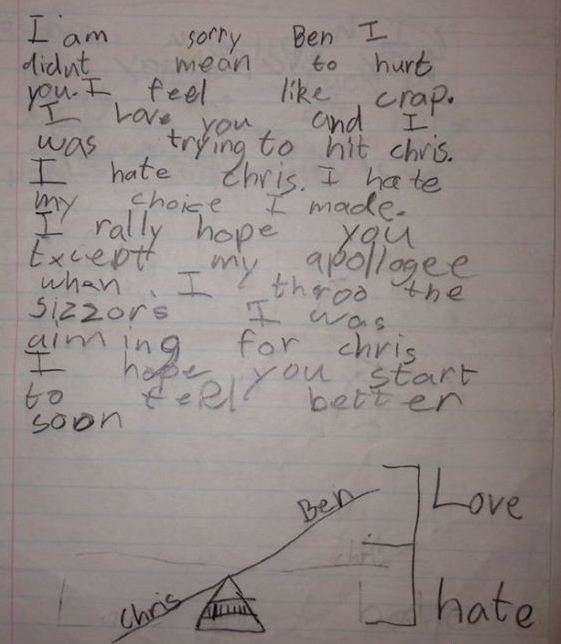 I am sorry Ben I
didnt mean to hurt
you. I feel like crap.
I Love you and I
was trying to hit chris.
I hate chris. I hate
my choice I made.
I rally hope you
Except my apollogee
when I throo the
sizzors I was
aiming for chris
I hope you start
to feel better
soon
Ben
Love
chris
Chris
hate